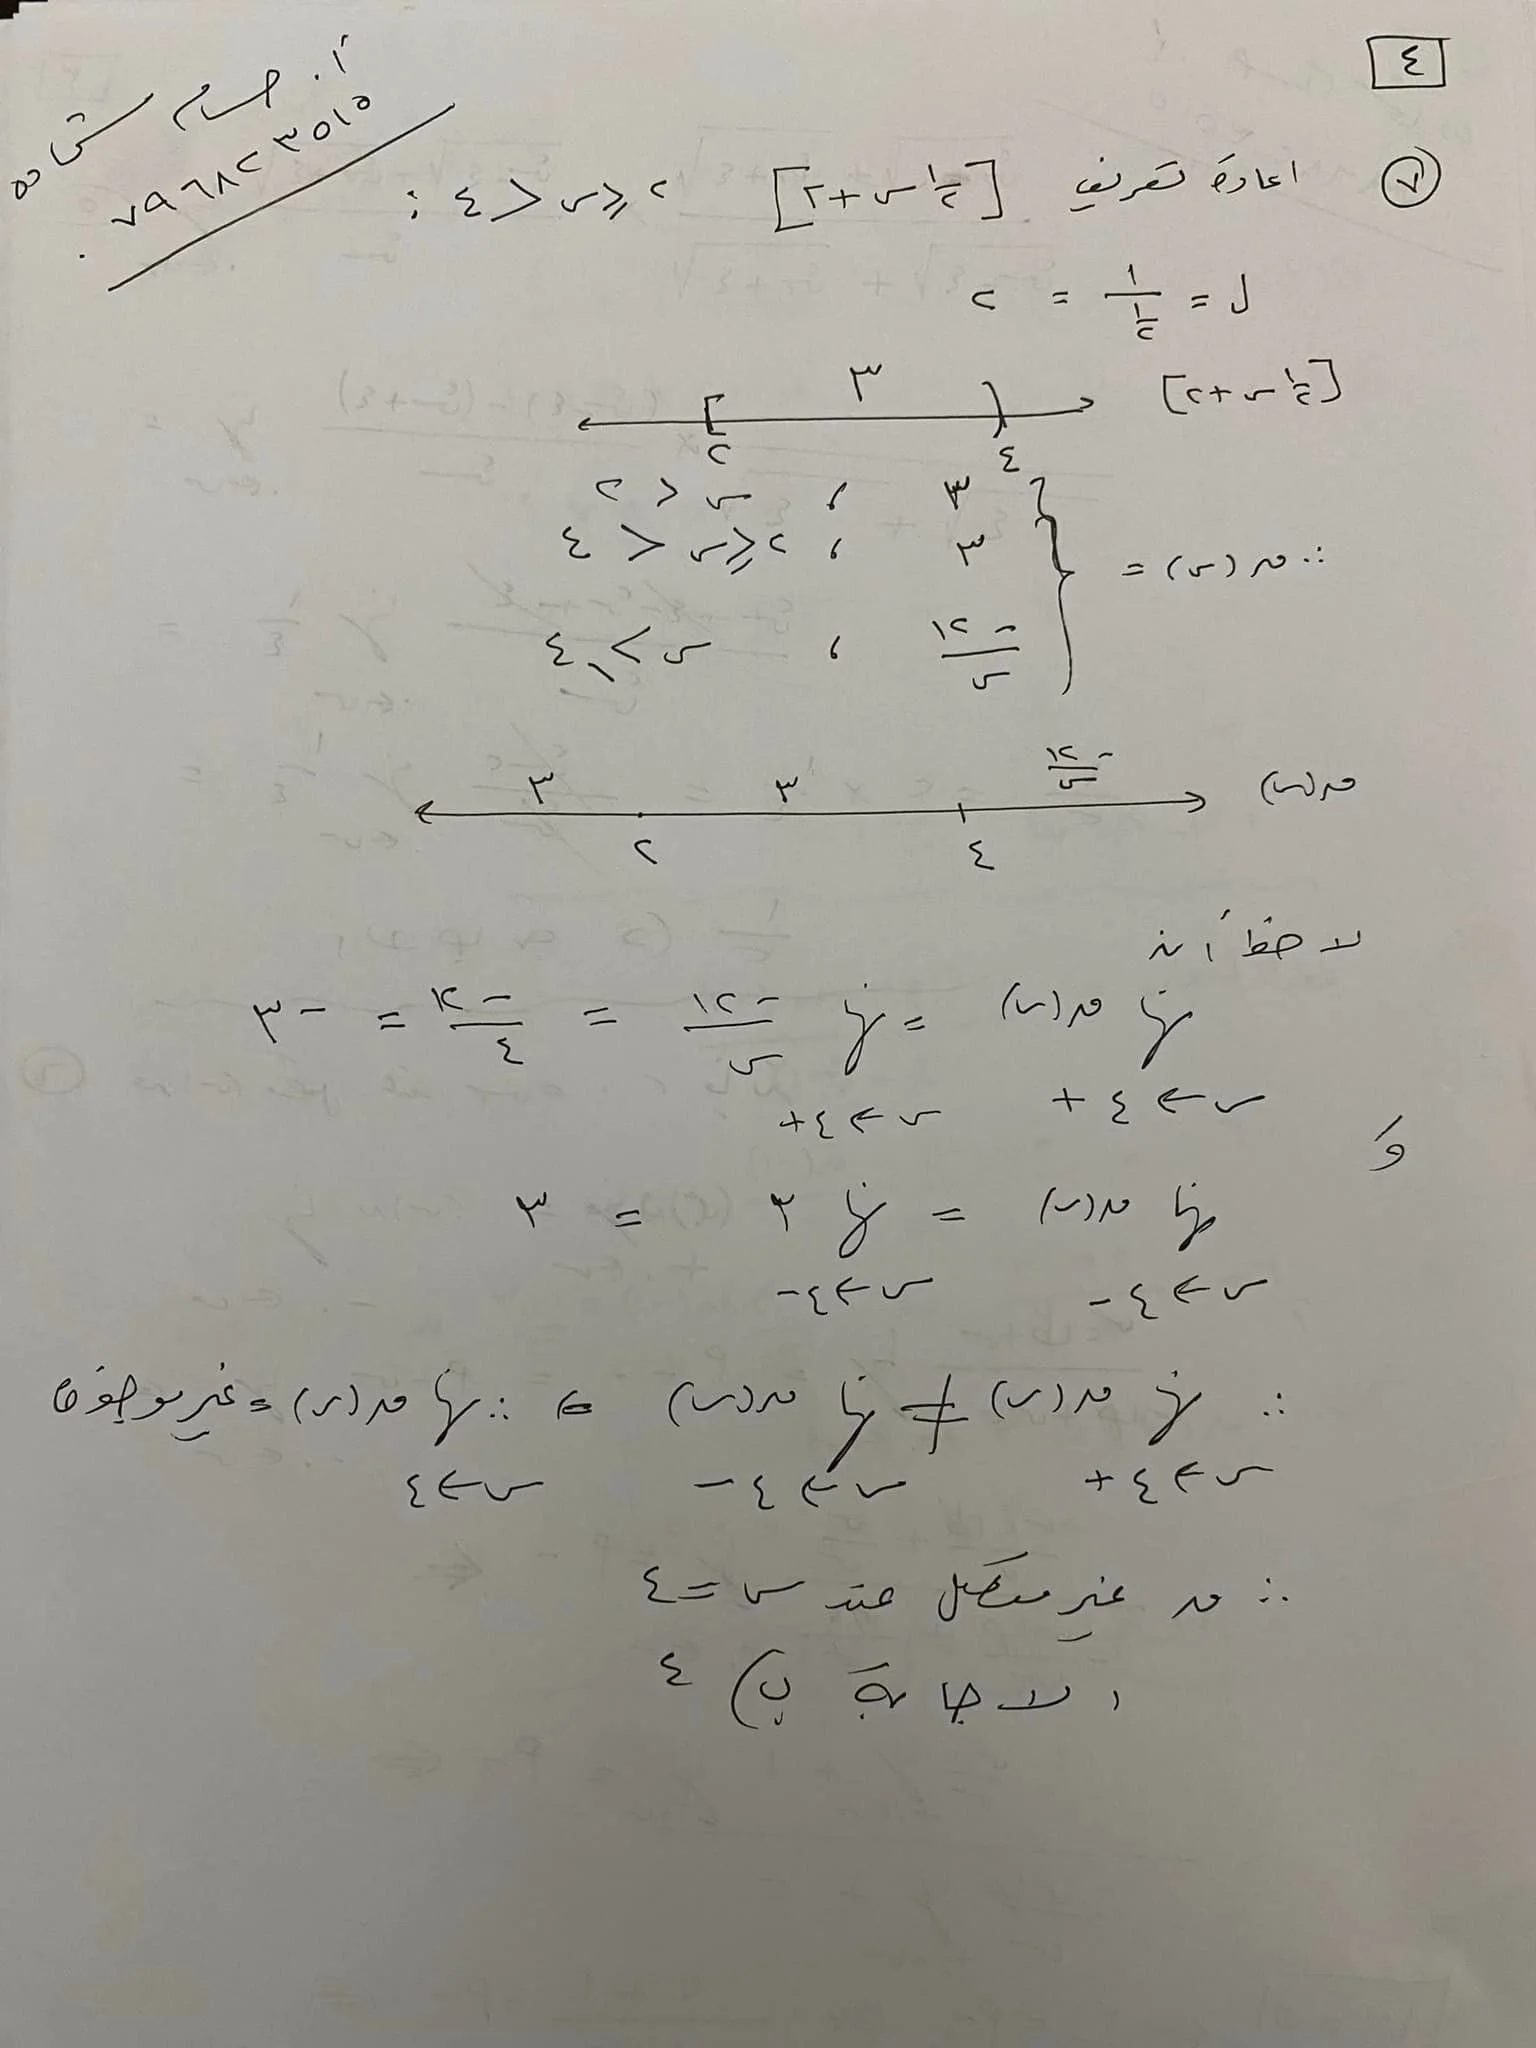 ٤
أ. حسام
٠٧٩٦٨٢٣٥١٥
٧ اعادة تعريف [١/٢ س + ٢] ٢ ≤ س < ٤ :
ل = ١ / ١/٢ = ٢
[١/٢ س + ٢] ٣
٢ ٤
∴ ق(س) = { ٣ ، س < ٢
٣ ، ٢ ≤ س < ٤
-١٢/س ، س ≥ ٤
ق(س) ٣ ٣ -١٢/س
٢ ٤
لاحظ أن
نها ق(س) = نها -١٢/س = -١٢/٤ = -٣
س→٤+ س→٤+
و
نها ق(س) = نها ٣ = ٣
س→٤- س→٤-
∴ نها ق(س) ≠ نها ق(س) ⇐ ∴ نها ق(س) = غير موجودة
س→٤+ س→٤- س→٤
∴ ق غير متصل عند س = ٤
الاجابة ب) ٤